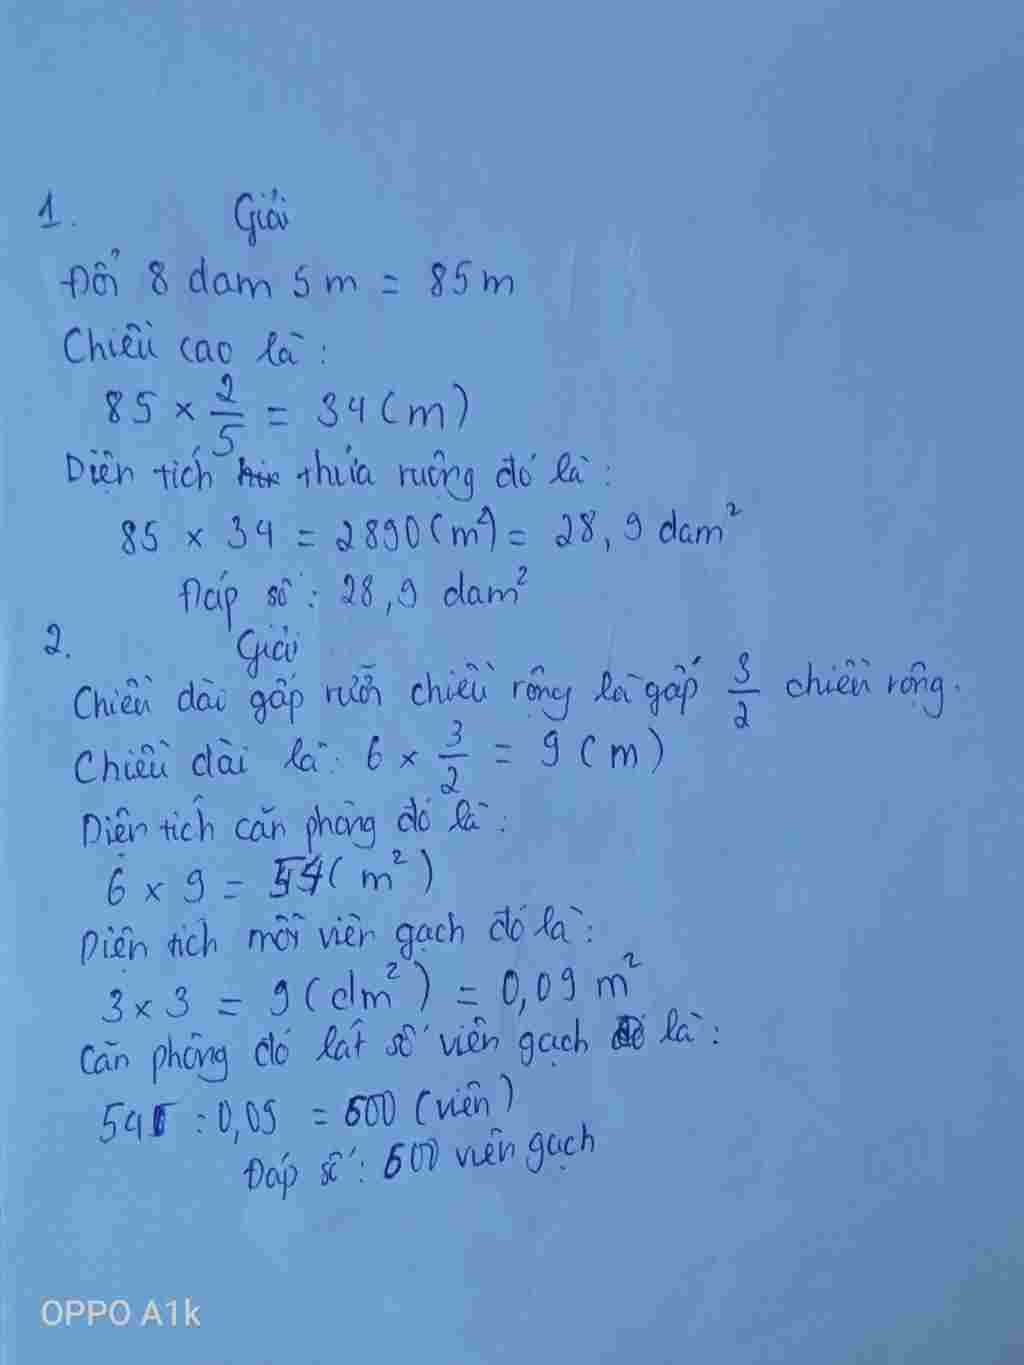 1. Giải
Đổi 8 dam 5m = 85m
Chiều cao là:
85 × 2/5 = 34 (m)
Diện tích thửa ruộng đó là:
85 × 34 = 2890 (m²) = 28,9 dam²
Đáp số: 28,9 dam²
2. Giải
Chiều dài gấp rưỡi chiều rộng là gấp 3/2 chiều rộng.
Chiều dài là: 6 × 3/2 = 9 (m)
Diện tích căn phòng đó là:
6 × 9 = 54 (m²)
Diện tích mỗi viên gạch đó là:
3 × 3 = 9 (dm²) = 0,09 m²
Căn phòng đó lát số viên gạch là:
54 : 0,09 = 600 (viên)
Đáp số: 600 viên gạch
OPPO A1k